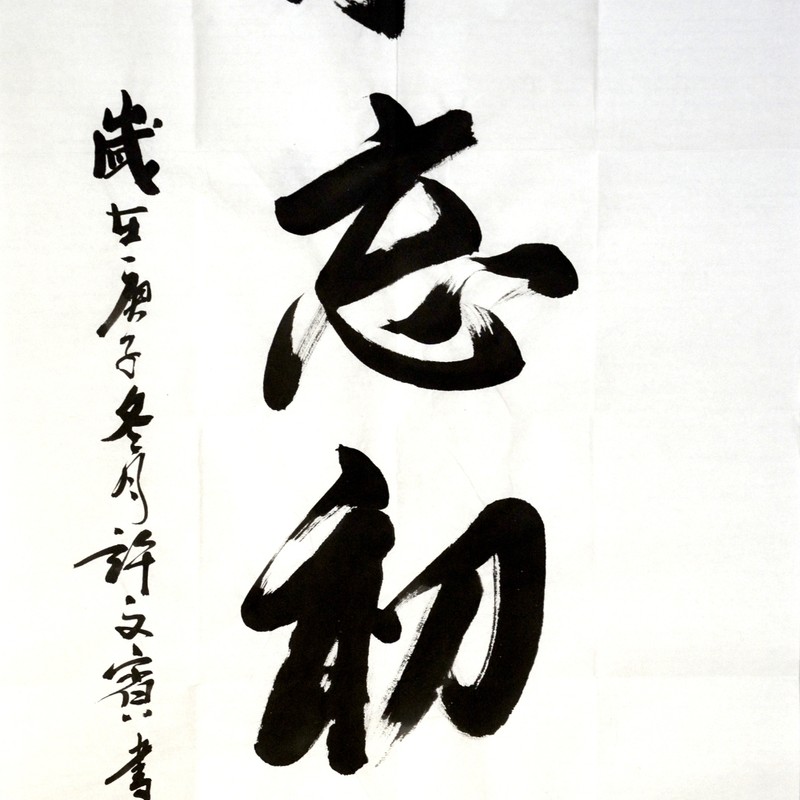 忘初
歲在庚子冬月許文賓書